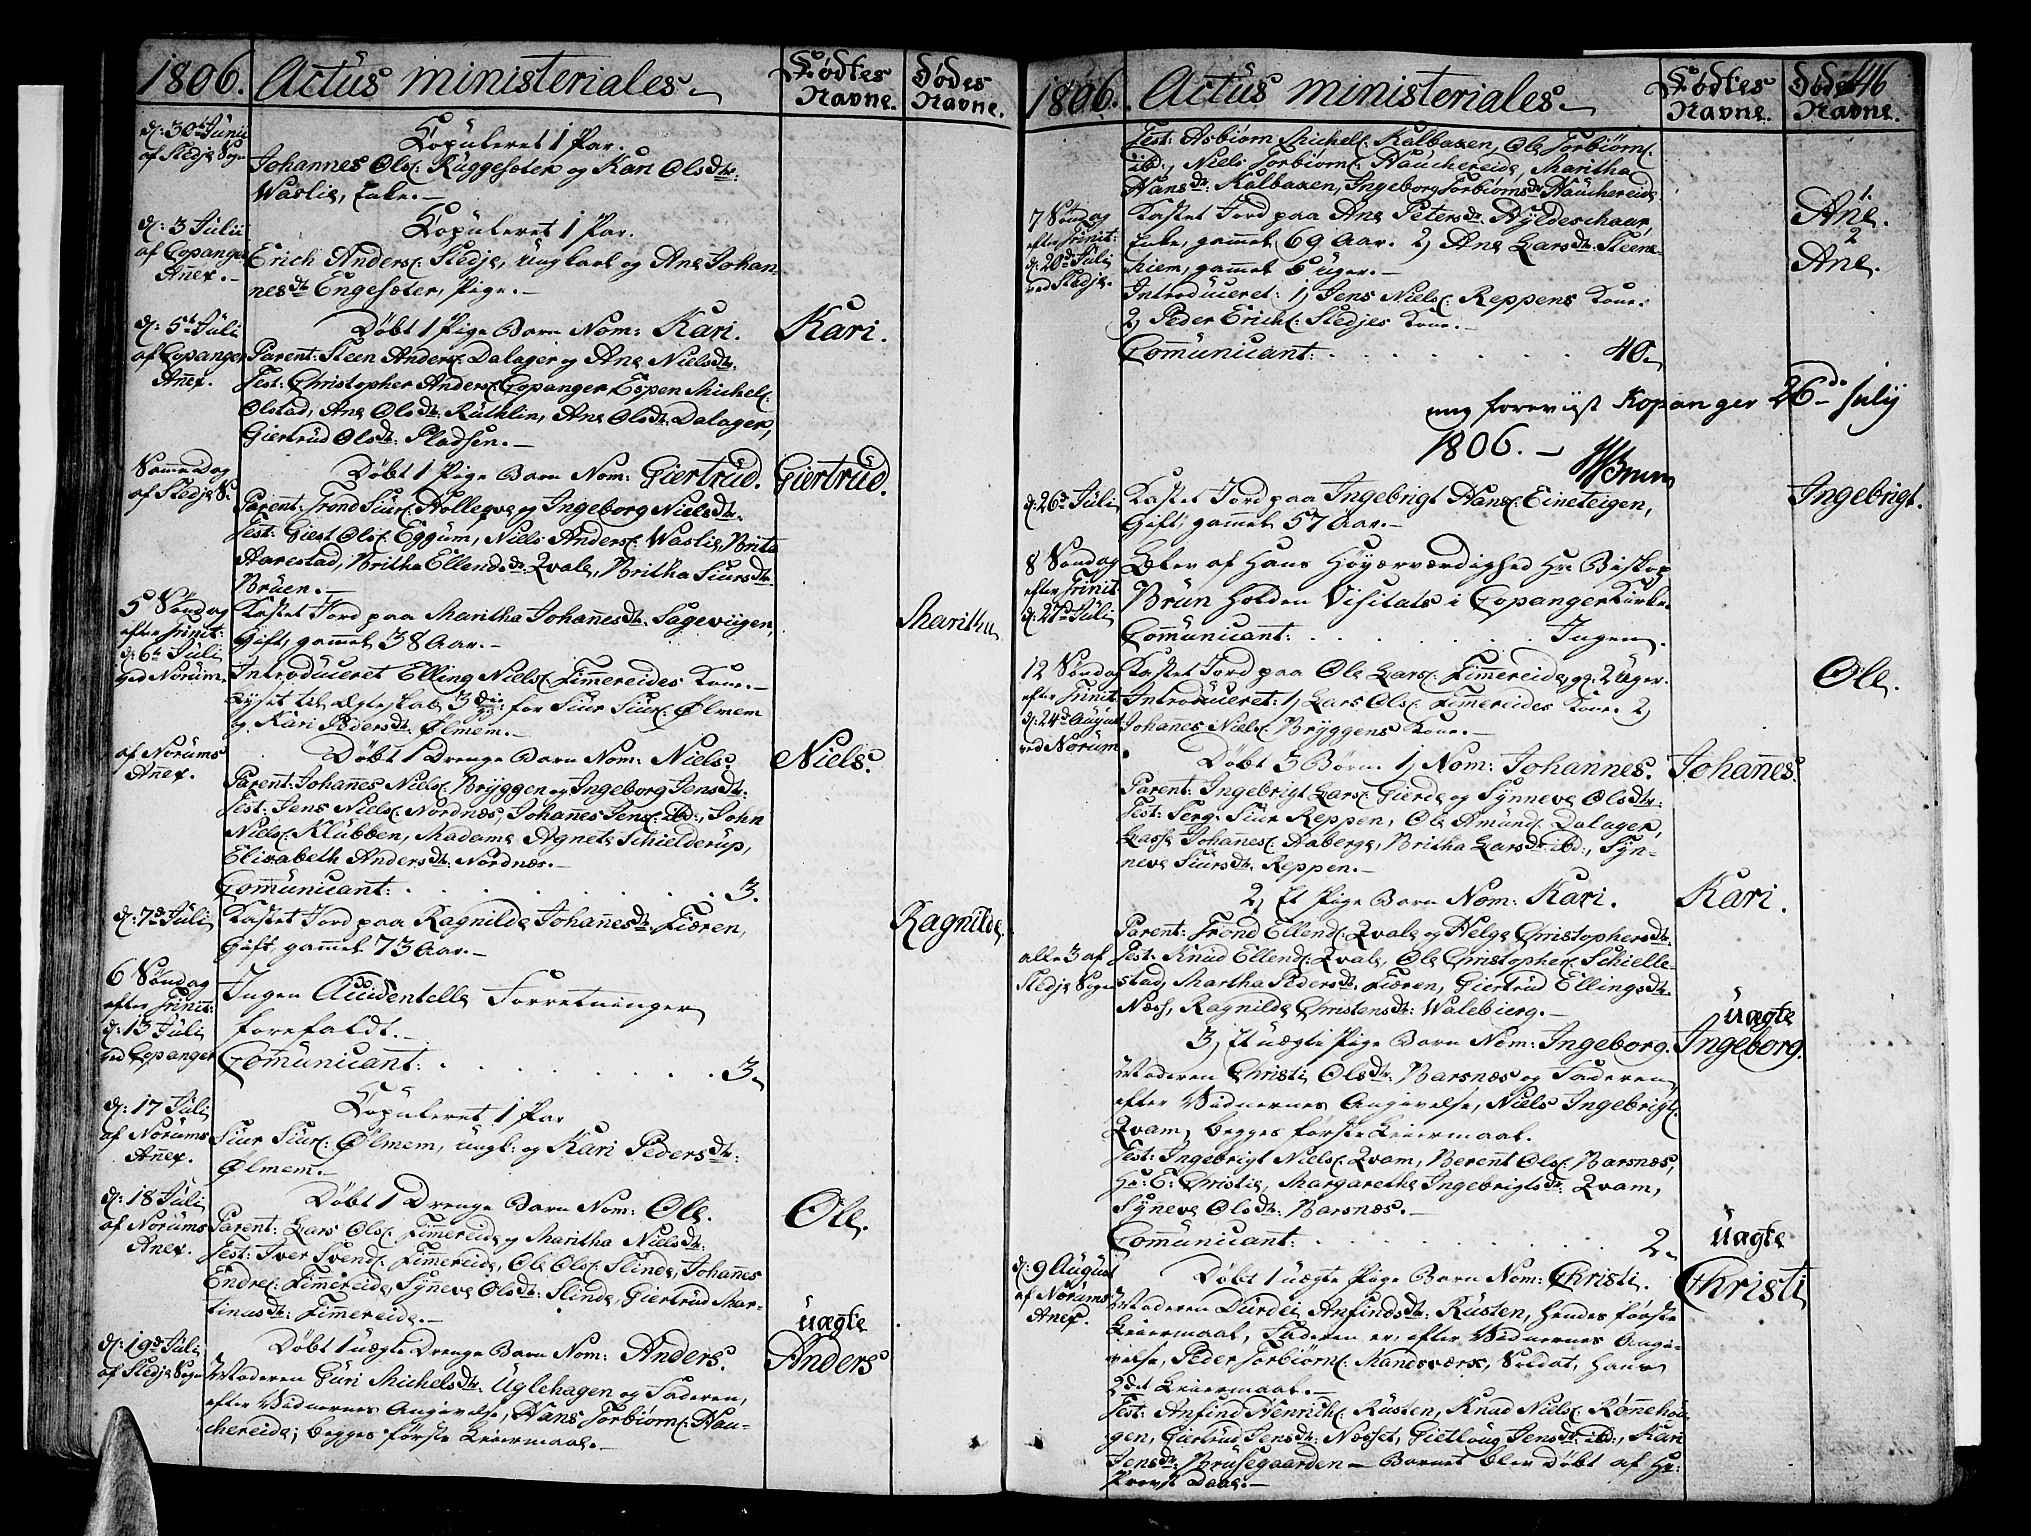 1806. Actus ministeriales. Fødtes Navne. Dødes Navne.
d: 30te Junii af Sledje Sogn
Copuleret 1 Par.
Johannes Ols: Ruggesæter og Kari Olsdtr:
Waslie, Enke.
d: 3 Julii af Copanger Annex.
Copuleret 1 Par.
Erich Anders: Sledje, Ungkarl og Ane Johan
nesdtr Engesæter, Pige.
d: 5te Juli af Copanger Annex.
Døbt 1 Pige Barn Nom: Kari. Kari.
Parent: Steen Anders: Dalager og Ane Nielsdtr:
Test: Christopher Anders: Copanger, Espen Michels:
Olstad, Ane Olsdtr: Ruthlin, Ane Olsdtr: Dalager,
Giertrud Olsdtr: Pladsen.
Samme Dag af Sledje S.
Døbt 1 Pige Barn Nom: Giertrud. Giertrud.
Parent: Trond Siurs: Holleqve og Ingeborg Nielsdtr.
Test: Giest Ols: Eggum, Niels Anders: Waslie, Brita
Aarestad, Britha Ellendsdr: Qvale, Britha Siursdtr
Bruen.
5 Søndag efter Trinit: d: 6te Juli ved Norum.
Kastet Jord paa Maritha Johannesdtr: Sagevigen, Maritha
Gift, gammel 38 Aar.
Introduceret Elling Niels: Fimmereides Kone.
Lyset til Ægteskab 3die g: for Siur Siurs: Ølmem
og Kari Pedersdtr: Ølmem.
af Norums Annex.
Døbt 1 Drenge Barn Nom: Niels. Niels.
Parent: Johannes Niels: Bryggen og Ingeborg Jensdtr:
Test: Jens Niels: Nordnæs, Johanes Jens: ibd:, John
Niels: Klubben, Madame Agnete Schielderup,
Elisabeth Andersdtr: Nordnæs.
Communicant: . . . . . . . 3.
d: 7de Juli
Kastet Jord paa Ragnilde Johannesdtr: Fiæren, Ragnilde
Gift, gammel 73 Aar.
6 Søndag efter Trinit: d: 13 Juli ved Copanger
Ingen Accidentelle Forretninger
forefaldt.
Communicant: . . . . . . . 3.
d: 17 Juli af Norums Annex.
Copuleret 1 Par
Siur Siurs: Ølmem, Ungk: og Kari Pedersdtr:
Ølmem.
d: 18 Juli af Norums Anex.
Døbt 1 Drenge Barn Nom: Ole. Ole.
Parent: Lars Ols: Fimmereide og Maritha Nielsdtr:
Test: Iver Svend: Fimereide, Ole Ols: Slinde, Johannes
Endres: Fimereide, Synneve Olsdtr: Slinde, Giertrud Mar-
tinusdtr: Fimmereide.
d: 19de Juli af Sledje Sogn
Døbt 1 uægte Drenge Barn Nom: Anders. uægte Anders
Moderen Guri Michelsdtr: Uglehagen og Faderen,
efter Vidnernes Angivelse, Hans Torbiørn: Hau-
chereide; begges første Leiermaal.
1806. Actus ministeriales. Fødtes Navne. Dødes Navne. 146
Test: Asbiørn Michels: Kalbaxen, Ole Torbiørn:
ibd:, Niels Torbiørn: Hauchereide, Maritha
Hansdtr: Kalbaxen, Ingeborg Torbiørnsdtr Hauchereide
7 Søndag efter Trinit: d: 20de Juli ved Sledje.
Kastet Jord paa Ane Petersdtr: Hyldeschaur, 1. Ane.
Enke, gammel 69 Aar. 2, Ane Larsdtr: Steene- 2 Ane.
hiem, gammel 6 Uger.
Introduceret: 1, Jens Niels: Reppens Kone:
2, Peder Erichs: Sledjes Kone.
Communicant: . . . . . . . 40.
mig foreviist Kopanger 26de July
1806. Brun
d: 26de Juli
Kastet Jord paa Ingebrigt Hans: Eineteigen, Ingebrigt.
Gift, gammel 57 Aar.
8 Søndag efter Trinit: d: 27de Juli
Blev af Hans Høyærværdighed Hr: Biskop
Brun holden Visitats i Copanger Kirke.
Communicant: . . . . . . Ingen.
12 Søndag efter Trinit: d: 24de August ved Norum
Kastet Jord paa Ole Lars: Fimmereide, g: 2 Uger. Ole.
Introduceret: 1, Lars Ols: Fimereides Kone. 2,
Johannes Niels: Bryggens Kone.
Døbt 3 Børn. 1, Nom: Johannes. Johanes.
Parent: Ingebrigt Lars: Gierde og Synneve Olsdtr:
Test: Serg: Siur Reppen, Ole Amund: Dalager,
Lasse Johannes: Aaberge, Britha Larsdtr: ibd:, Syn-
neve Siursdtr: Reppen.
2, Et Pige Barn Nom: Kari. Kari.
alle 3 af Sledje Sogn
Parent: Trond Ellend: Qvale og Helge Christophersdtr:
Test: Knud Ellend: Qvale, Ole Christopher: Schielle-
stad, Martha Pedersdtr: Fiæren, Giertrud Ellingsdtr:
Næss, Ragnilde Christensdtr: Walebierg.
3, Et uægte Pige Barn Nom: Ingeborg. uægte Ingeborg.
Moderen Christi Olsdtr: Barsnæs og Faderen
efter Vidnernes Angivelse, Niels Ingebrigt:
Qvam, begges første Leiermaal.
Test: Ingebrigt Niels: Qvam, Berent Ols: Barsnæs,
Hr: E: Christie, Margarethe Ingebrigtsdtr: Qvam,
Synneve Olsdtr: Barsnæs.
Communicant: . . . . . . . 2.
d: 9 August af Norums Anex.
Døbt 1 uægte Pige Barn Nom: Christi. uægte Christi
Moderen Durdei Anfindsdtr: Rusten, hendes første
Leiermaal, Faderen er, efter Vidnernes Angi-
velse, Peder Torbiørn: Mandsværk, Soldat, hans
2det Leiermaal.
Test: Anfind Henrich: Rusten, Knud Niels: Rønnehou-
gen, Giertrud Jensdtr: Næsset, Gietloug Jensdtr: ibd:, Kari
Jensdtr: Brusegaarden – Barnet blev døbt af Hr:
Provst Daae.